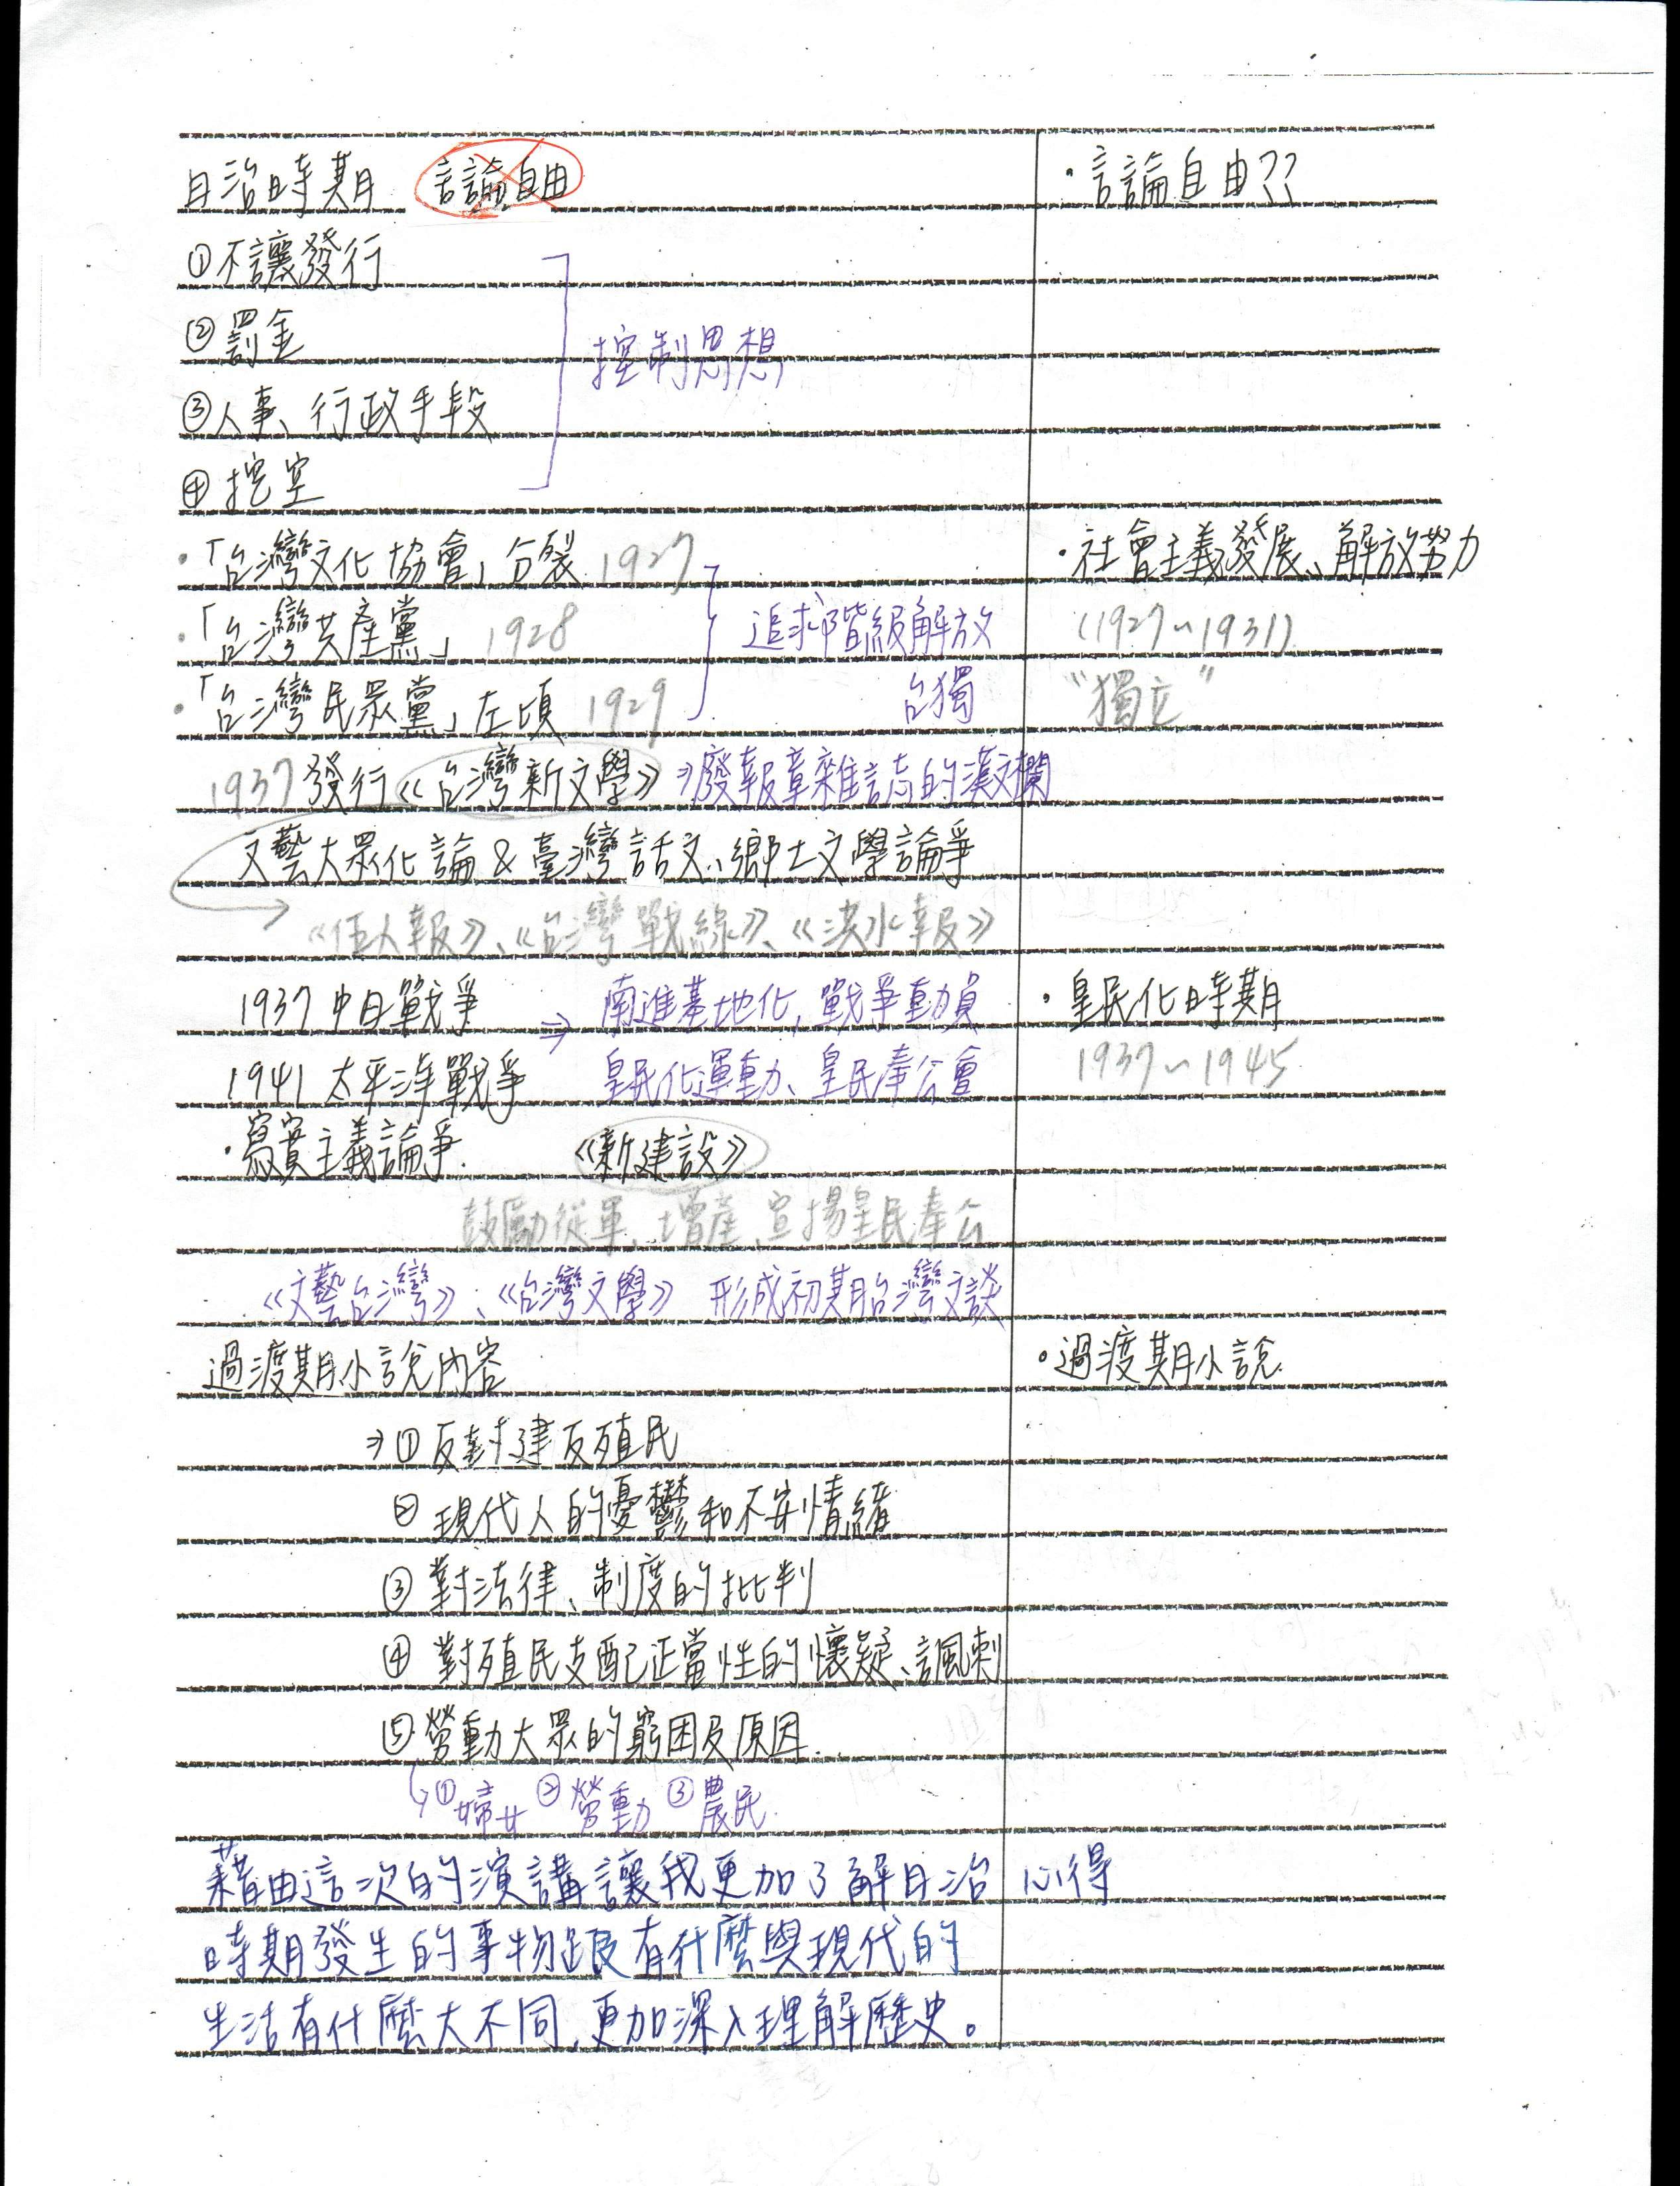 日治時期 言論自由
・言論自由??
①不讓發行
②罰金
控制思想
③人事、行政手段
④挖空
・「台灣文化協會」分裂 1927
・社會主義發展、解放努力
・「台灣共產黨」 1928
追求階級解放
(1927~1931)
・「台灣民眾黨」左傾 1929
台獨
"獨立"
1937 發行《台灣新文學》⇒廢報章雜誌的漢文欄
文藝大眾化論 & 臺灣話文、鄉土文學論爭
→《伍人報》、《台灣戰線》、《洪水報》
1937 中日戰爭 ⇒ 南進基地化, 戰爭動員
・皇民化時期
1941 太平洋戰爭 皇民化運動、皇民奉公會
1937~1945
・寫實主義論爭. 《新建設》
鼓勵從軍、增產、宣揚皇民奉公
《文藝台灣》、《台灣文學》 形成初期台灣文談
過渡期小說內容
・過渡期小說.
⇒①反封建反殖民
②現代人的憂鬱和不安情緒
③對法律、制度的批判
④對殖民支配正當性的懷疑、諷刺
⑤勞動大眾的窮困及原因.
↳①婦女 ②勞動 ③農民
藉由這次的演講讓我更加了解日治
心得
時期發生的事物跟有什麼與現代的
生活有什麼大不同,更加深入理解歷史。